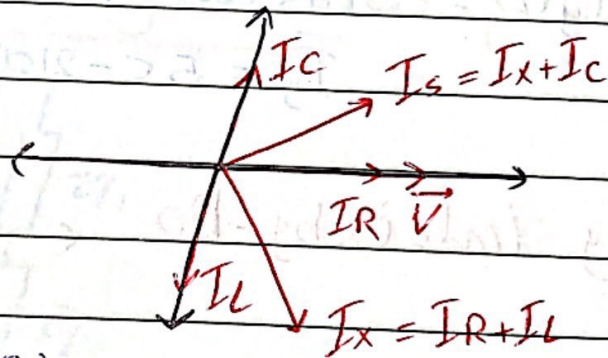 IC
IS = IX+IC
IR V
IL
IX = IR+IL